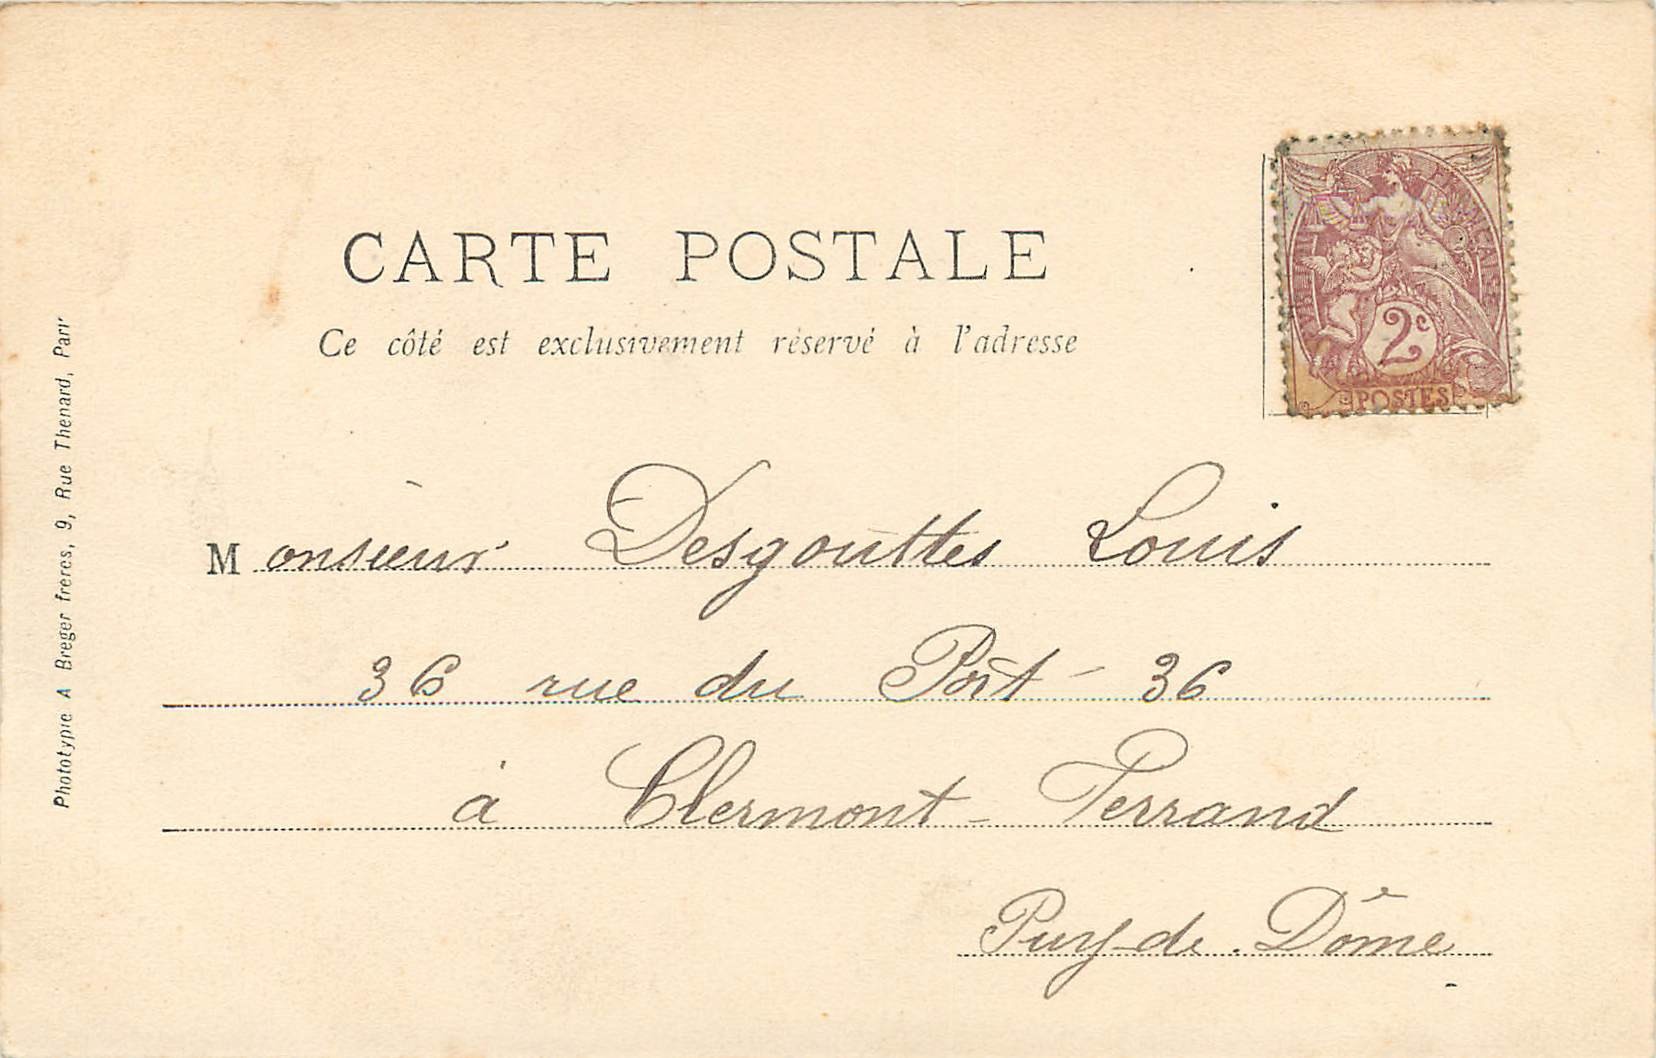 CARTE POSTALE
Ce côté est exclusivement réservé à l'adresse
FRANÇAISE
2c
POSTES
Monsieur Desgouttes Louis
36 rue du Port - 36
à Clermont-Ferrand
Puy-de-Dôme
Phototypie A Breger frères, 9, Rue Thenard, Paris